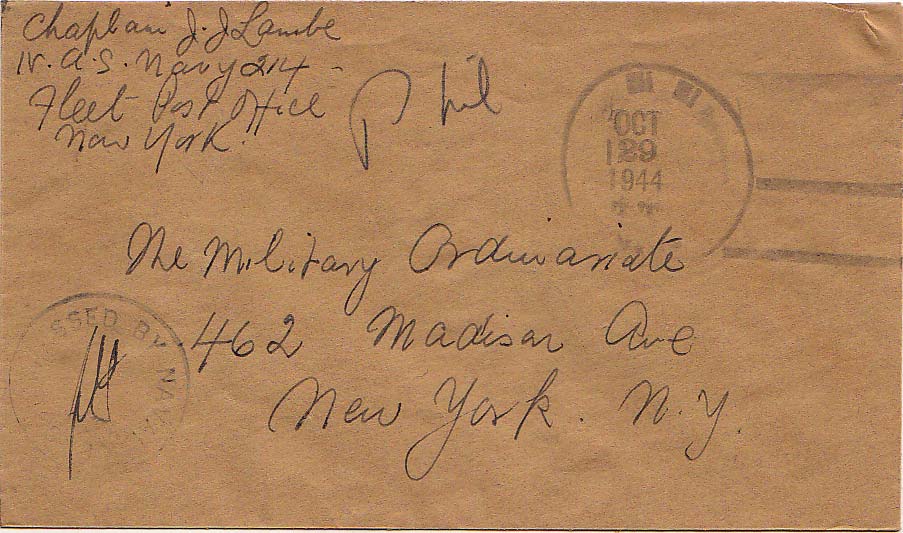 Chaplain J. J Lambe
N. A. S. Navy 214 -
Fleet Post Office
New York.
OCT
29
1944
The Military Ordinariate
462 Madison Ave
New York. N.Y.
SSED BY NAV